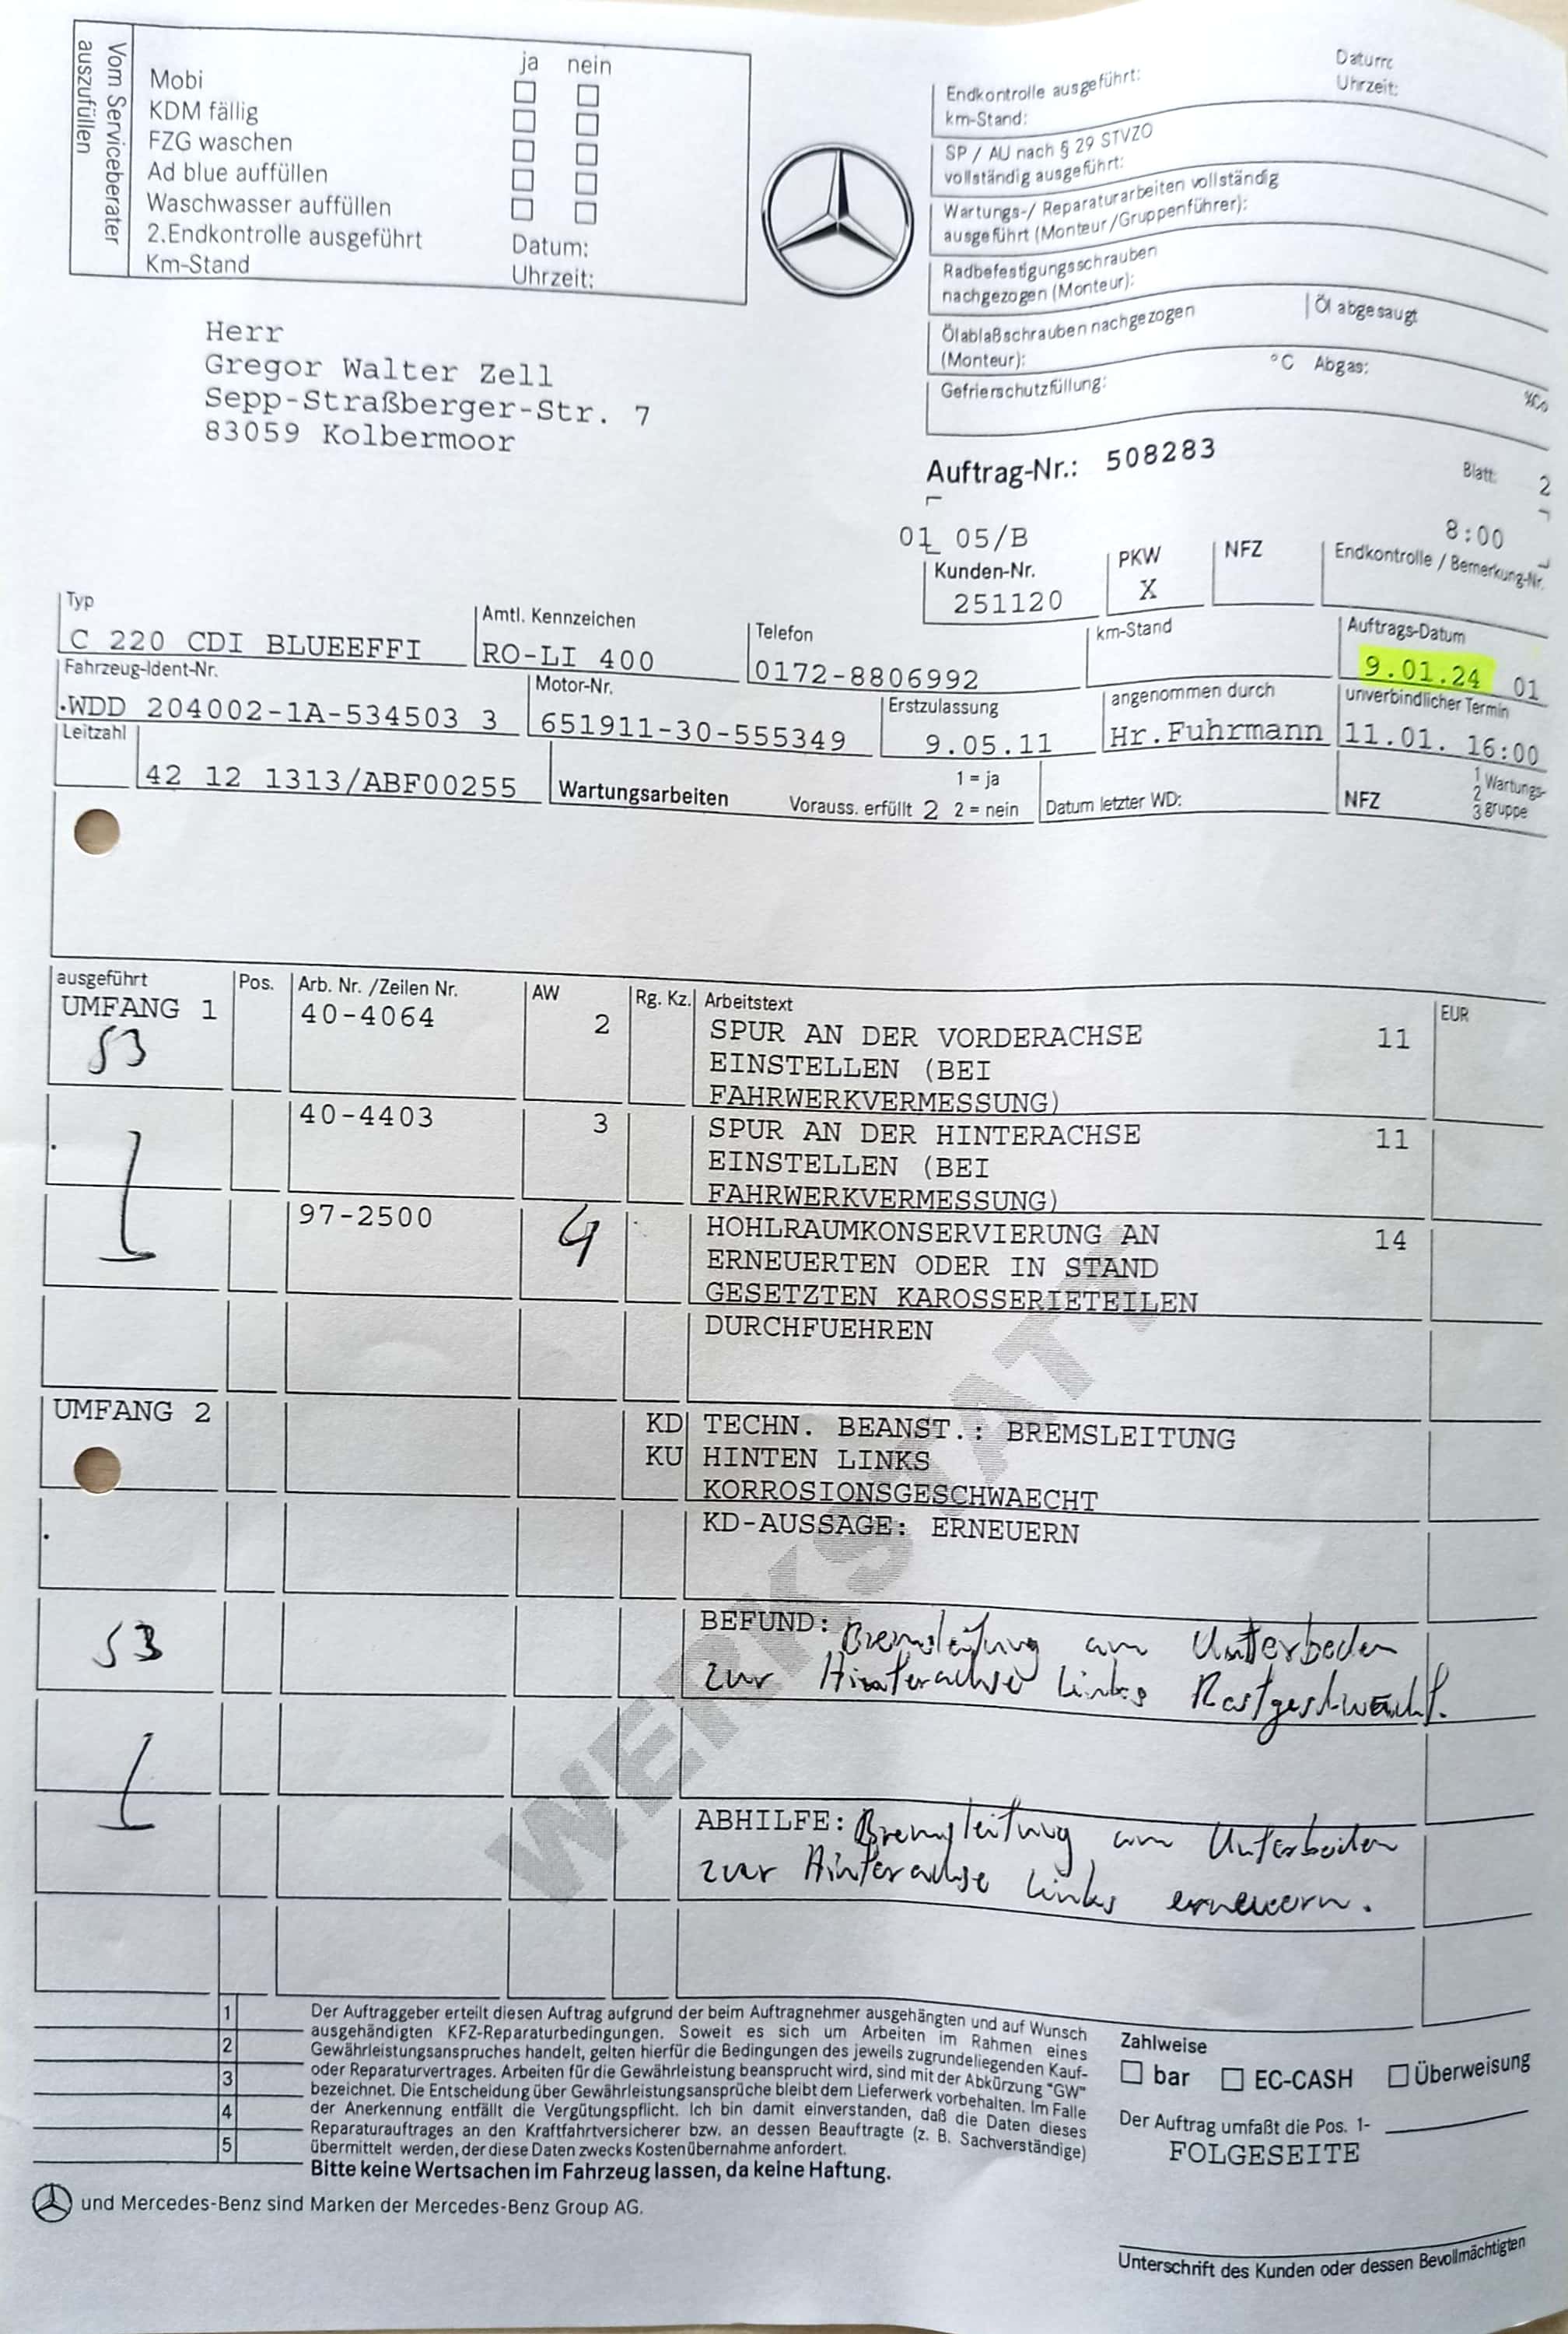 Vom Serviceberater
auszufüllen
ja nein
Mobi
KDM fällig
FZG waschen
Ad blue auffüllen
Waschwasser auffüllen
2.Endkontrolle ausgeführt Datum:
Km-Stand Uhrzeit:
Endkontrolle ausgeführt:
km-Stand:
Uhrzeit:
SP / AU nach § 29 STVZO
vollständig ausgeführt:
Wartungs-/ Reparaturarbeiten vollständig
ausgeführt (Monteur/Gruppenführer):
Radbefestigungsschrauben
nachgezogen (Monteur):
Ölablaßschrauben nachgezogen Öl abgesaugt
(Monteur):
Gefrierschutzfüllung: °C Abgas: %Co
Herr
Gregor Walter Zell
Sepp-Straßberger-Str. 7
83059 Kolbermoor
Auftrag-Nr.: 508283 Blatt: 2
01 05/B 8:00
Kunden-Nr. PKW NFZ Endkontrolle / Bemerkung-Nr.
251120 X
Typ Amtl. Kennzeichen Telefon km-Stand Auftrags-Datum
C 220 CDI BLUEEFFI RO-LI 400 0172-8806992 9.01.24 01
Fahrzeug-Ident-Nr. Motor-Nr. Erstzulassung angenommen durch unverbindlicher Termin
WDD 204002-1A-534503 3 651911-30-555349 9.05.11 Hr.Fuhrmann 11.01. 16:00
Leitzahl
42 12 1313/ABF00255 Wartungsarbeiten Vorauss. erfüllt 2 1 = ja 2 = nein Datum letzter WD: NFZ 1 2 3 Wartungs-gruppe
ausgeführt Pos. Arb. Nr. /Zeilen Nr. AW Rg. Kz. Arbeitstext EUR
UMFANG 1 40-4064 2 SPUR AN DER VORDERACHSE 11
53 EINSTELLEN (BEI
FAHRWERKVERMESSUNG)
40-4403 3 SPUR AN DER HINTERACHSE 11
EINSTELLEN (BEI
FAHRWERKVERMESSUNG)
97-2500 4 HOHLRAUMKONSERVIERUNG AN 14
ERNEUERTEN ODER IN STAND
GESETZTEN KAROSSERIETEILEN
DURCHFUEHREN
UMFANG 2 KD TECHN. BEANST.: BREMSLEITUNG
KU HINTEN LINKS
KORROSIONSGESCHWAECHT
KD-AUSSAGE: ERNEUERN
BEFUND: Bremsleitung am Unterboden
53 zur Hinterachse links Rostgeschwächt.
ABHILFE: Bremsleitung am Unterboden
zur Hinterachse links erneuern.
WERKSTATT
1
2
3
4
5
Der Auftraggeber erteilt diesen Auftrag aufgrund der beim Auftragnehmer ausgehängten und auf Wunsch
ausgehändigten KFZ-Reparaturbedingungen. Soweit es sich um Arbeiten im Rahmen eines
Gewährleistungsanspruches handelt, gelten hierfür die Bedingungen des jeweils zugrundeliegenden Kauf-
oder Reparaturvertrages. Arbeiten für die Gewährleistung beansprucht wird, sind mit der Abkürzung "GW"
bezeichnet. Die Entscheidung über Gewährleistungsansprüche bleibt dem Lieferwerk vorbehalten. Im Falle
der Anerkennung entfällt die Vergütungspflicht. Ich bin damit einverstanden, daß die Daten dieses
Reparaturauftrages an den Kraftfahrtversicherer bzw. an dessen Beauftragte (z. B. Sachverständige)
übermittelt werden, der diese Daten zwecks Kostenübernahme anfordert.
Bitte keine Wertsachen im Fahrzeug lassen, da keine Haftung.
Zahlweise
bar EC-CASH Überweisung
Der Auftrag umfaßt die Pos. 1-
FOLGESEITE
und Mercedes-Benz sind Marken der Mercedes-Benz Group AG.
Unterschrift des Kunden oder dessen Bevollmächtigten